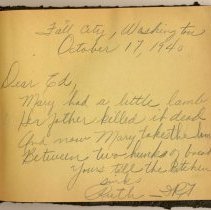 Fall City, Washington
October 17, 1940
Dear Ed,
Mary had a little lamb
Her father killed it dead
And now Mary takes the lamb
Between two hunks of bread
Yours till the kitchen
sinks
Ruth